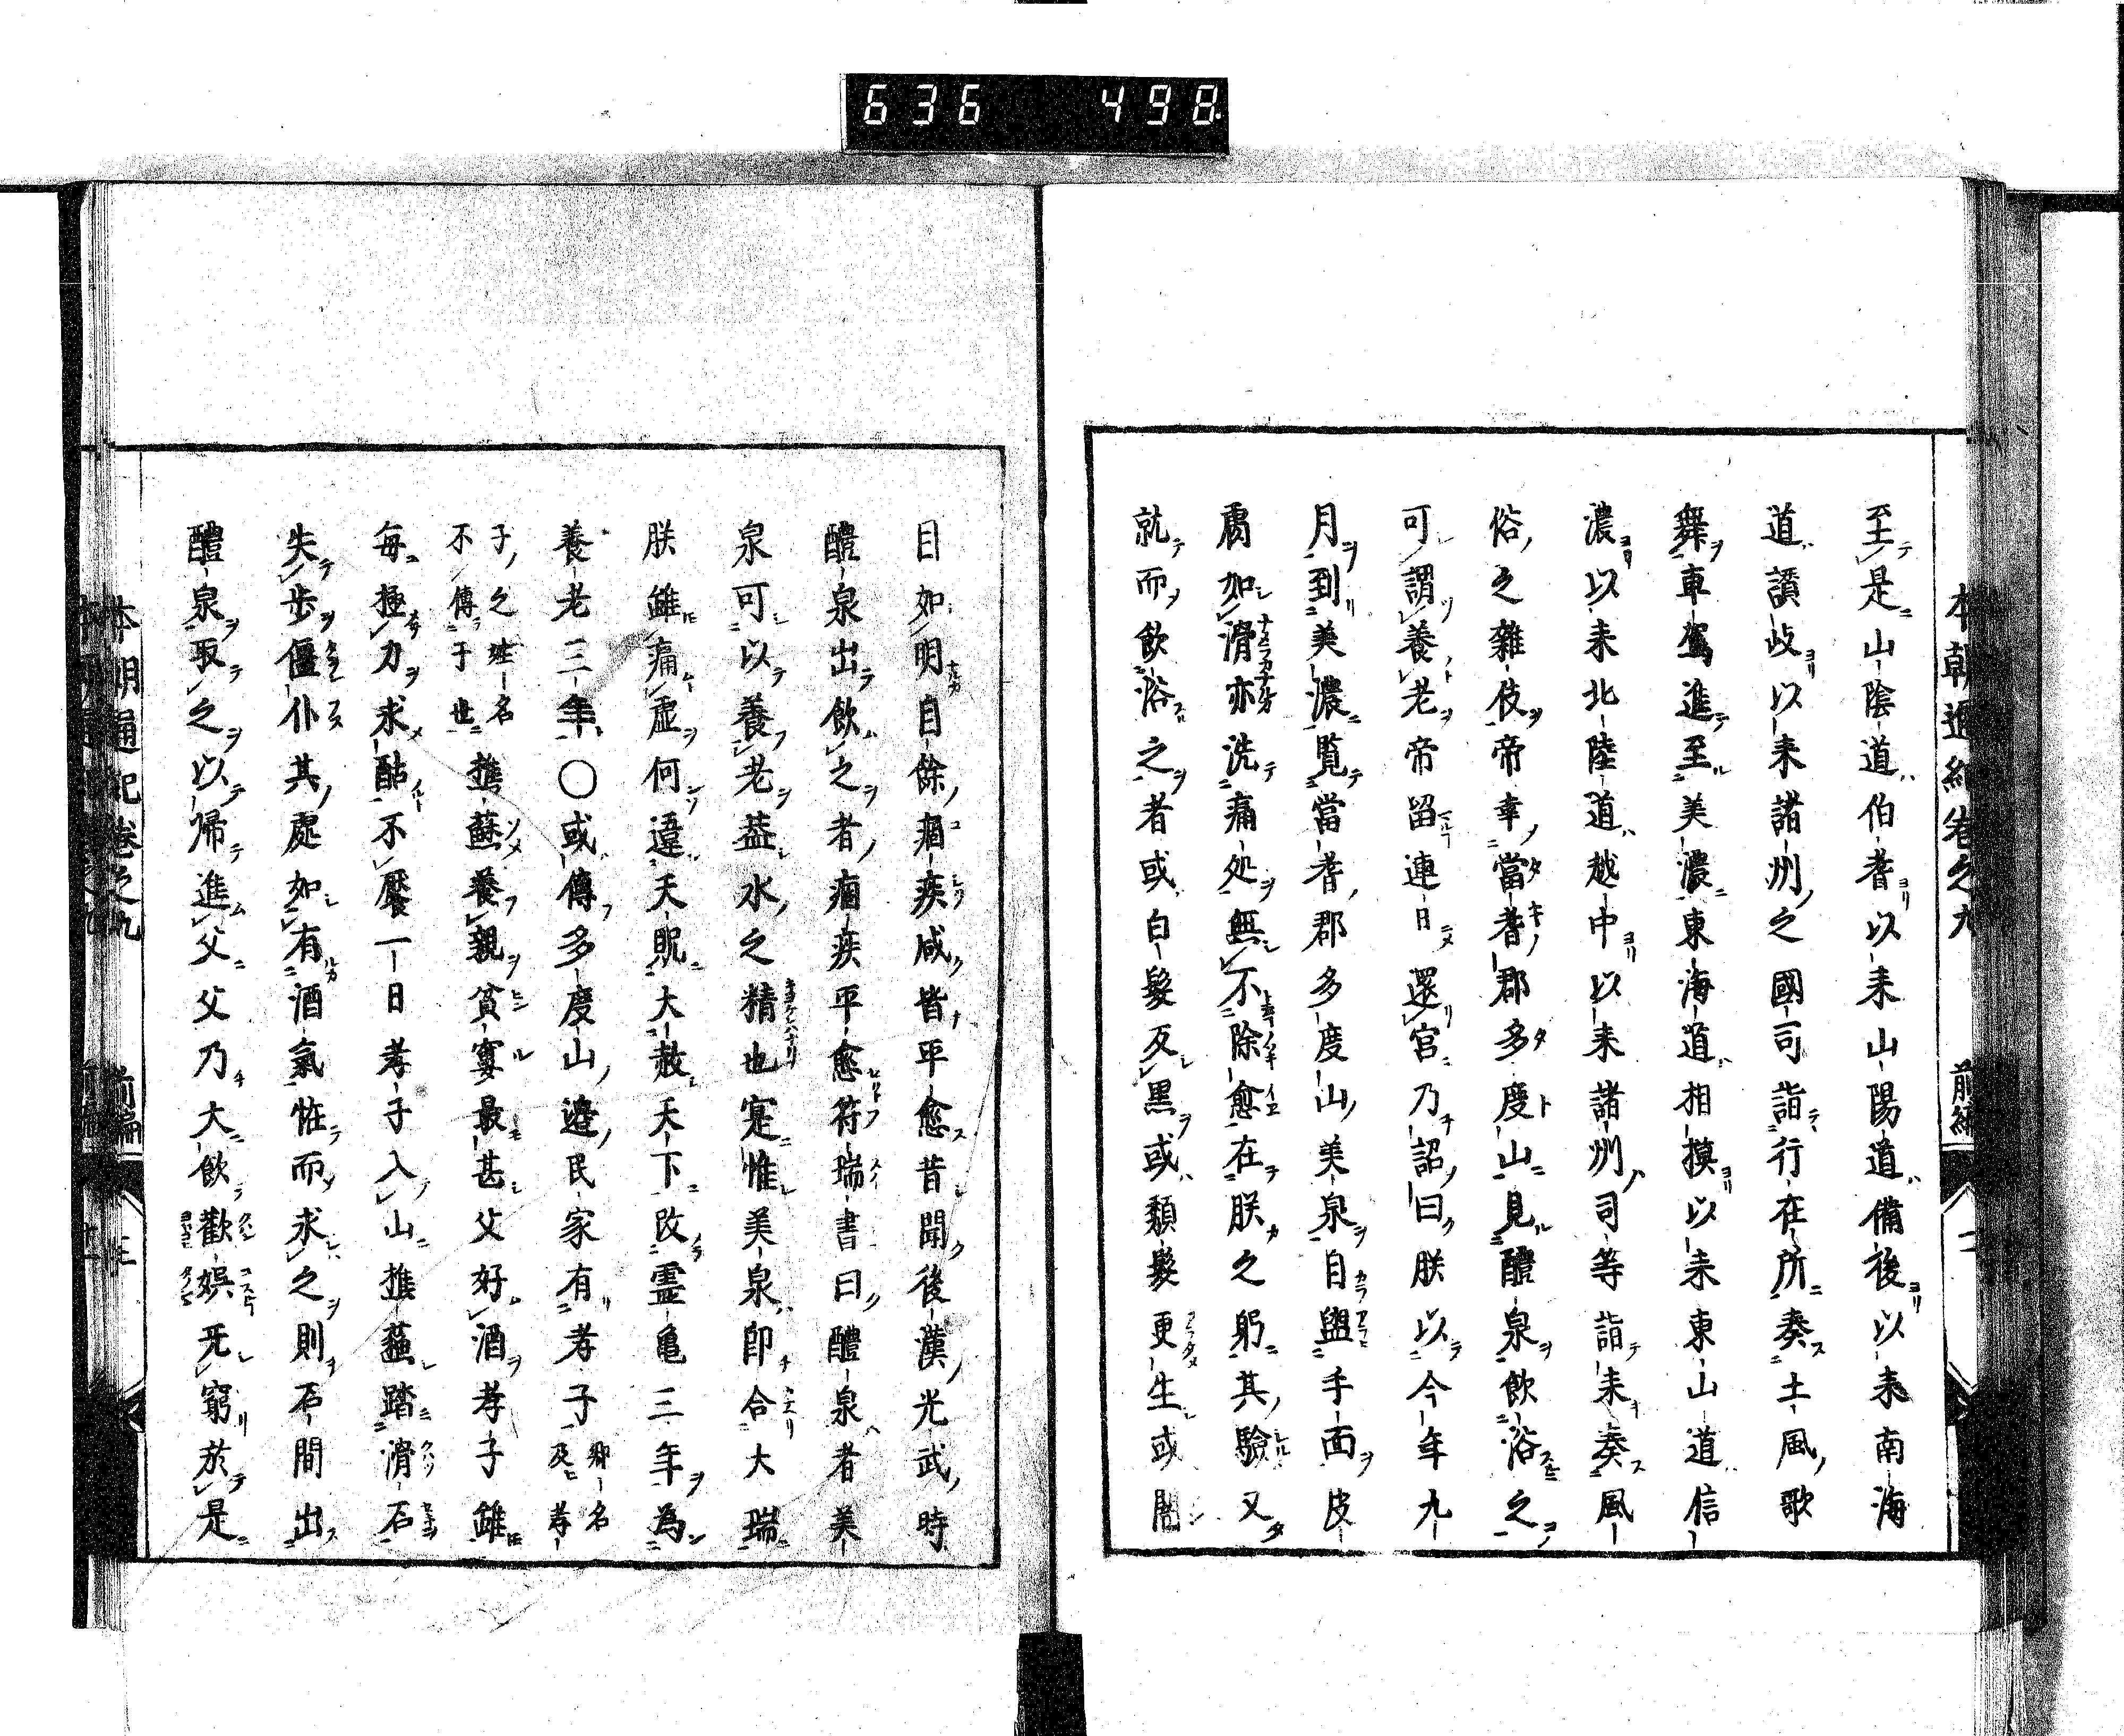 636 498
本朝通紀卷之九 前編
至是山陰道伯耆以来山陽道備後以来南海
道讚岐以来諸州之國司詣行在所奏土風歌
舞車駕進至美濃東海道相摸以来東山道信
濃以来北陸道越中以来諸州司等詣来奏風
俗之雜伎帝幸當耆郡多度山見醴泉飲浴之
可謂養老帝留連日還宮乃詔曰朕以今年九
月到美濃覧當耆郡多度山美泉自盥手面皮
膚如滑亦洗痛処無不除愈在朕之躬其驗又
就而飲浴之者或白髮反黒或頽髮更生或闇
目如明自餘痼疾咸皆平愈昔聞後漢光武時
醴泉出飲之者痼疾平愈符瑞書曰醴泉者美
泉可以養老葢水之精也寔惟美泉即合大瑞
朕雖痡虚何違天貺大赦天下改霊亀三年為
養老三年○或傳多度山邉民家有孝子郷名及孝
子之姓名不傳于世樵蘇養親貧窶最甚父好酒孝子雖
毎極力求酤不饜一日孝子入山樵蘓踏滑石
失歩僵仆其處如有酒氣恠而求之則石間出
醴泉取之以帰進父父乃大飲歡娯无窮於是
本朝通紀卷之九 前編 三